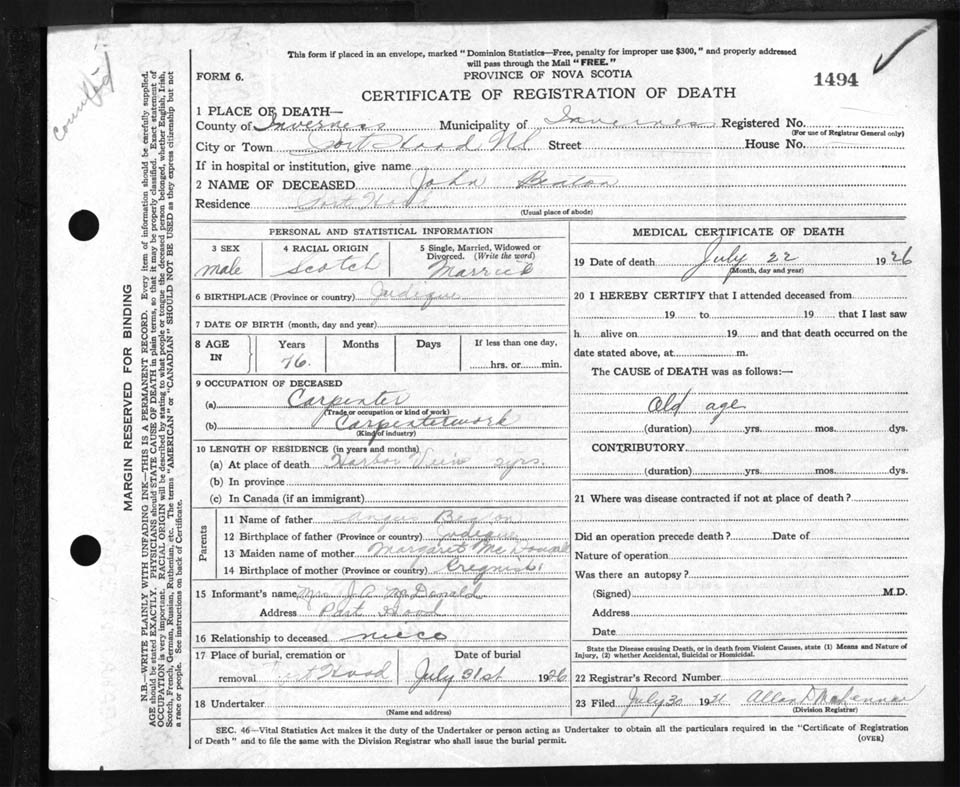 This form if placed in an envelope, marked "Dominion Statistics—Free, penalty for improper use $300," and properly addressed
will pass through the Mail "FREE."
FORM 6.
PROVINCE OF NOVA SCOTIA
1494
CERTIFICATE OF REGISTRATION OF DEATH
1 PLACE OF DEATH—
County of Inverness Municipality of Inverness Registered No.
(For use of Registrar General only)
City or Town Port Hood NS Street House No.
If in hospital or institution, give name
2 NAME OF DECEASED John Beaton
Residence Port Hood
(Usual place of abode)
PERSONAL AND STATISTICAL INFORMATION
3 SEX 4 RACIAL ORIGIN 5 Single, Married, Widowed or
Divorced. (Write the word)
male Scotch Married
6 BIRTHPLACE (Province or country) Judique
7 DATE OF BIRTH (month, day and year)
8 AGE IN Years Months Days If less than one day,
76. hrs. or min.
9 OCCUPATION OF DECEASED
(a) Carpenter
(Trade or occupation or kind of work)
(b) Carpenterwork
(Kind of industry)
10 LENGTH OF RESIDENCE (in years and months)
(a) At place of death Harbor View 2yrs.
(b) In province
(c) In Canada (if an immigrant)
Parents
11 Name of father Angus Beaton
12 Birthplace of father (Province or country) Judique
13 Maiden name of mother Margaret McDonald
14 Birthplace of mother (Province or country)
15 Informant's name Mrs J. A. McDonald
Address Port Hood
16 Relationship to deceased niece
17 Place of burial, cremation or Date of burial
removal Port Hood July 31st 1926
18 Undertaker
(Name and address)
MEDICAL CERTIFICATE OF DEATH
19 Date of death July 22 1926
(Month, day and year)
20 I HEREBY CERTIFY that I attended deceased from
19 to 19 that I last saw
h alive on 19 and that death occurred on the
date stated above, at m.
The CAUSE of DEATH was as follows:—
Old age
(duration) yrs. mos. dys.
CONTRIBUTORY
(duration) yrs. mos. dys.
21 Where was disease contracted if not at place of death?
Did an operation precede death? Date of
Nature of operation
Was there an autopsy?
(Signed) M.D.
Address
Date
State the Disease causing Death, or in death from Violent Causes, state (1) Means and Nature of
Injury, (2) whether Accidental, Suicidal or Homicidal.
22 Registrar's Record Number
23 Filed July 30 19
(Division Registrar)
SEC. 46—Vital Statistics Act makes it the duty of the Undertaker or person acting as Undertaker to obtain all the particulars required in the "Certificate of Registration
of Death" and to file the same with the Division Registrar who shall issue the burial permit.
(OVER)
MARGIN RESERVED FOR BINDING
N.B.—WRITE PLAINLY WITH UNFADING INK—THIS IS A PERMANENT RECORD. Every item of information should be carefully supplied.
AGE should be stated EXACTLY. PHYSICIANS should STATE CAUSE OF DEATH in plain terms, so that it may be properly classified. Exact statement of
OCCUPATION is very important. RACIAL ORIGIN will be described by stating to what people or tongue the deceased person belonged, whether English, Irish,
Scotch, French, German, Russian, Ruthenian, etc. The terms "AMERICAN" or "CANADIAN" SHOULD NOT BE USED as they express citizenship but not
a race or people. See instructions on back of Certificate.